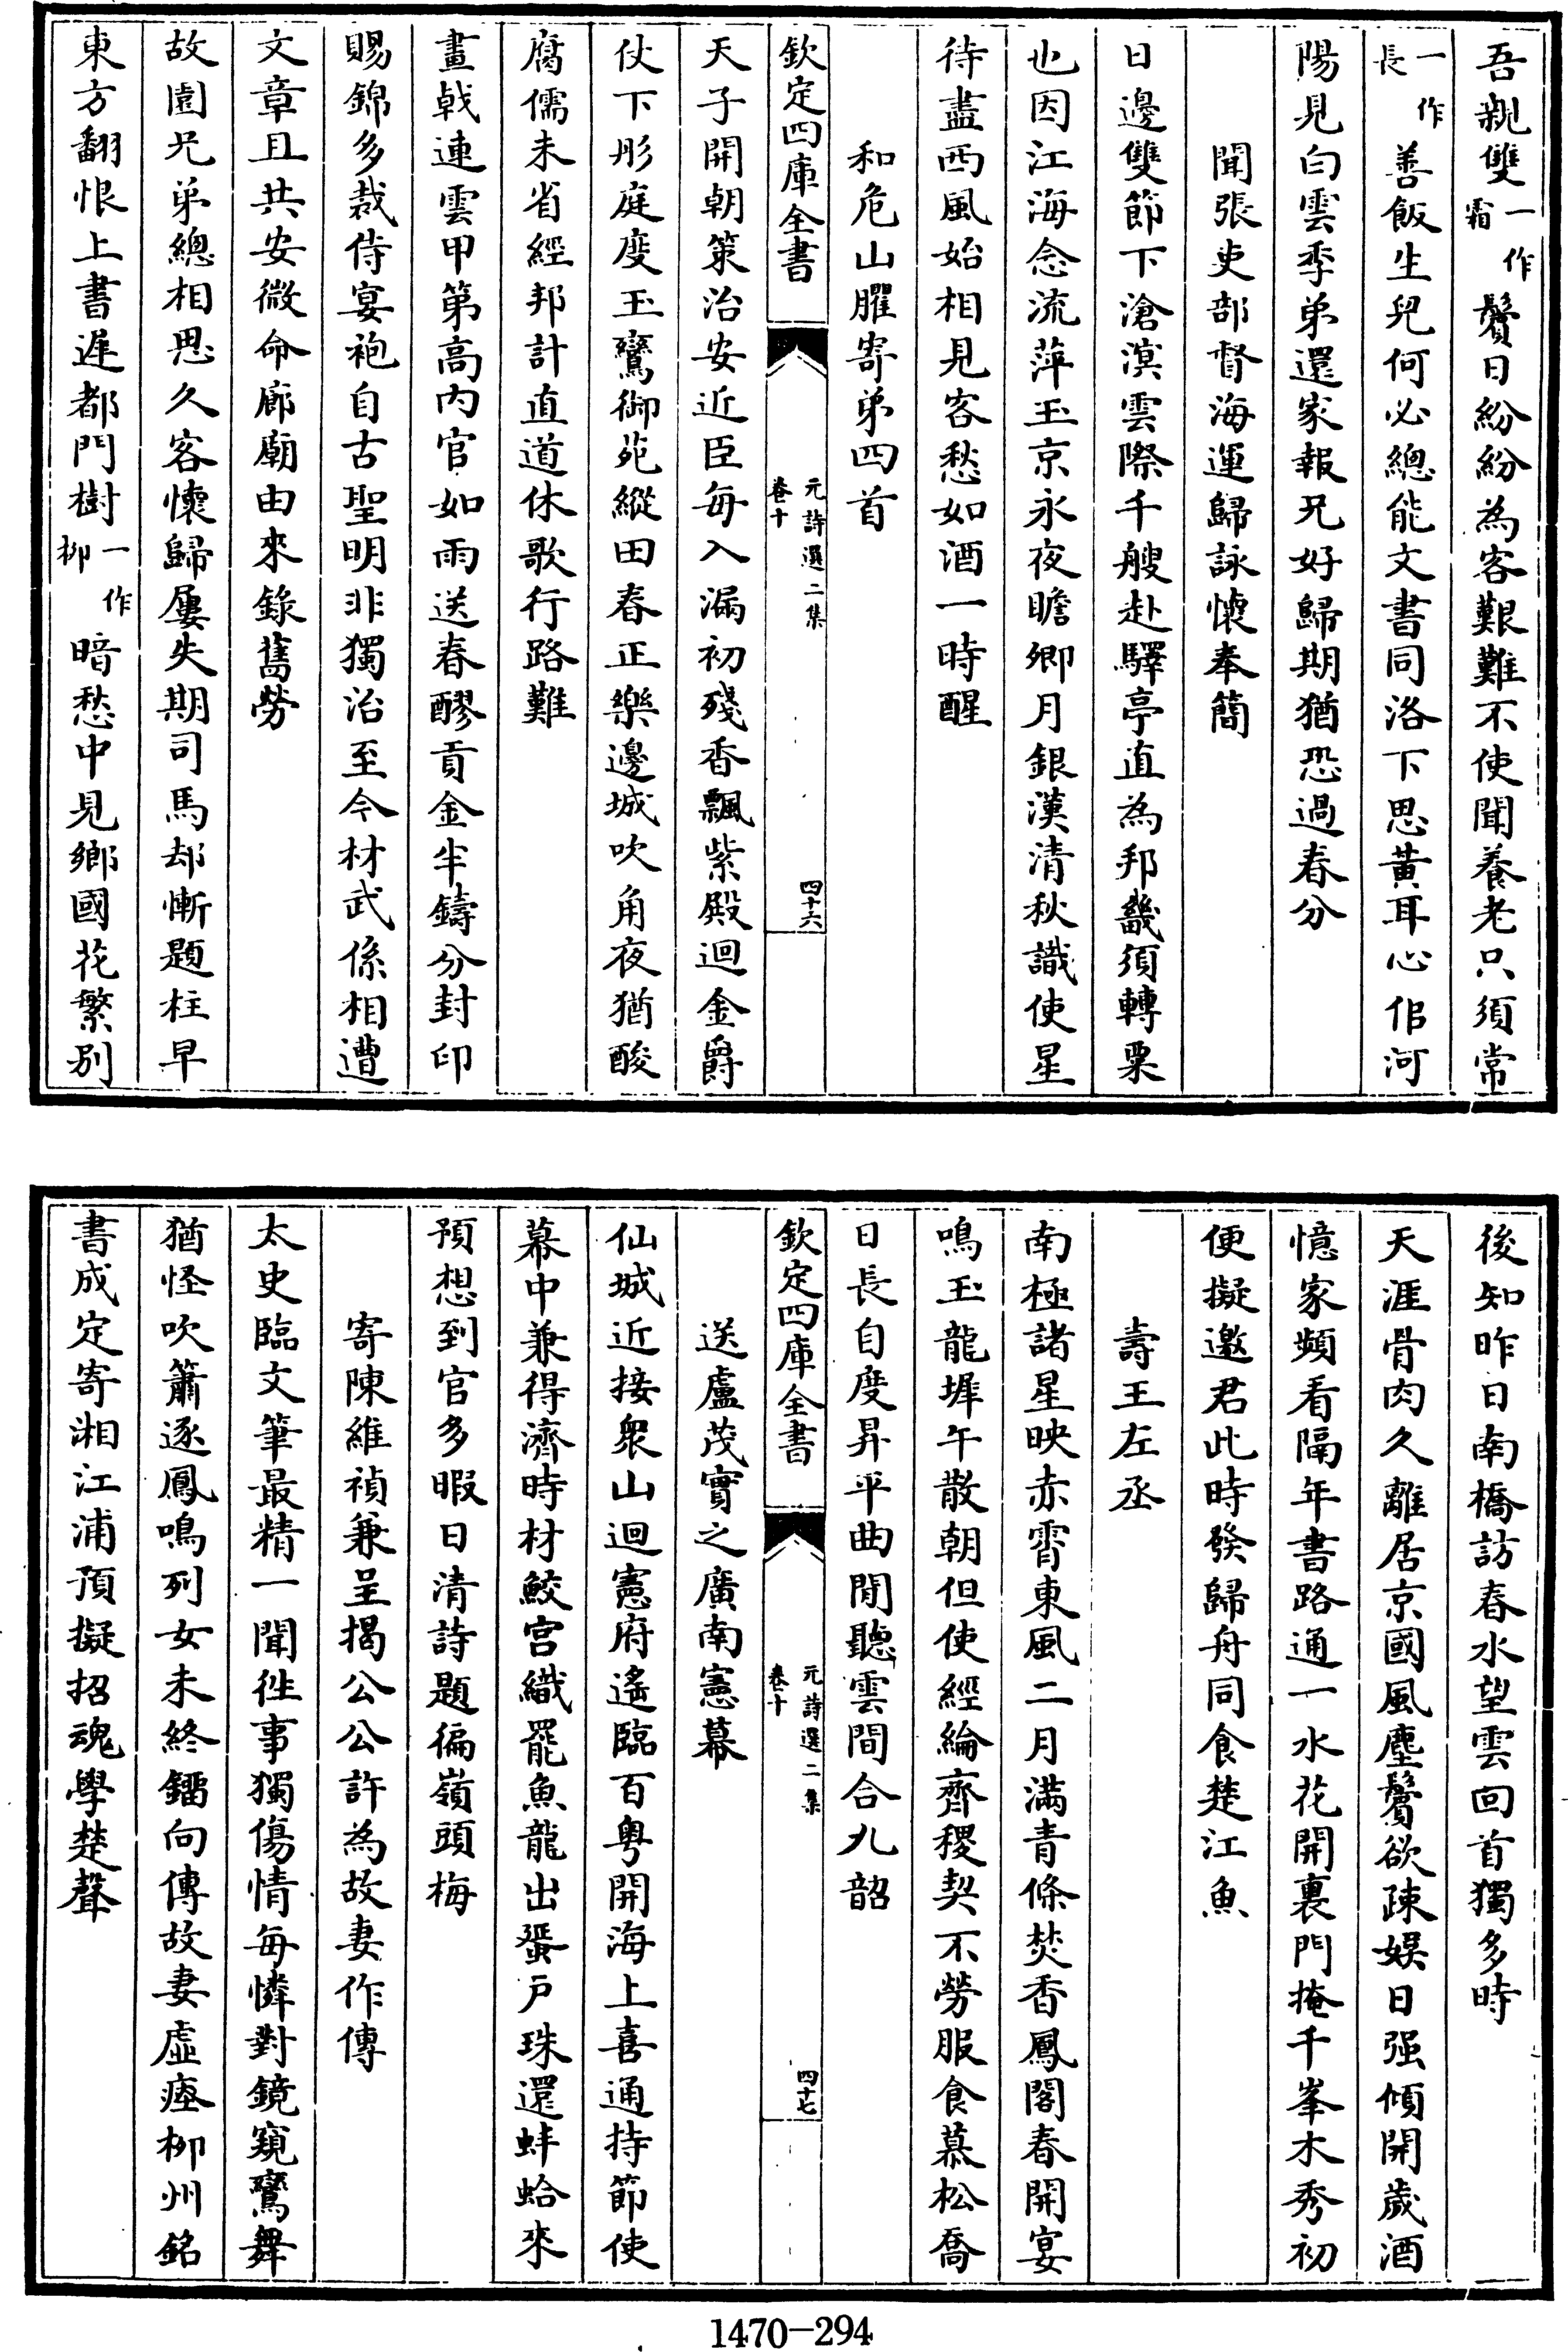 吾親雙一作霜鬢日紛紛為客艱難不使聞養老只須常
一作長善飯生兒何必總能文書同洛下思黄耳心似河
陽見白雲季弟還家報兄好歸期猶恐過春分
聞張吏部督海運歸詠懷奉簡
日邊雙節下滄溟雲際千艘赴驛亭直為邦畿須轉粟
也因江海念流萍玉京永夜瞻卿月銀漢清秋識使星
待盡西風始相見客愁如酒一時醒
和危山臞寄弟四首
欽定四庫全書
元詩選二集
卷十
四十六
天子開朝策治安近臣每入漏初殘香飄紫殿迴金爵
仗下彤庭度玉鸞御苑縱田春正樂邊城吹角夜猶酸
腐儒未省經邦計直道休歌行路難
畫戟連雲甲第高内官如雨送春醪貢金半鑄分封印
賜錦多裁侍宴袍自古聖明非獨治至今材武係相遭
文章且共安微命廊廟由來錄舊勞
故園兄弟總相思久客懷歸屢失期司馬却慚題柱早
東方翻恨上書遲都門樹一作柳暗愁中見鄉國花繁別
後知昨日南橋訪春水望雲回首獨多時
天涯骨肉久離居京國風塵鬢欲疎娯日强傾開歲酒
憶家頻看隔年書路通一水花開裏門掩千峯木秀初
便擬邀君此時發歸舟同食楚江魚
壽王左丞
南極諸星映赤霄東風二月滿青條焚香鳳閣春開宴
鳴玉龍墀午散朝但使經綸齊稷契不勞服食慕松喬
日長自度昇平曲閒聽雲間合九韶
欽定四庫全書
元詩選二集
卷十
四十七
送盧茂實之廣南憲幕
仙城近接衆山迴憲府遙臨百粤開海上喜通持節使
幕中兼得濟時材鮫宮織罷魚龍出蜑戸珠還蚌蛤來
預想到官多暇日清詩題徧嶺頭梅
寄陳維禎兼呈揭公公許為故妻作傳
太史臨文筆最精一聞徃事獨傷情每憐對鏡窺鸞舞
猶怪吹簫逐鳳鳴列女未終鐂向傳故妻虛瘞柳州銘
書成定寄湘江浦預擬招魂學楚聲
1470-294